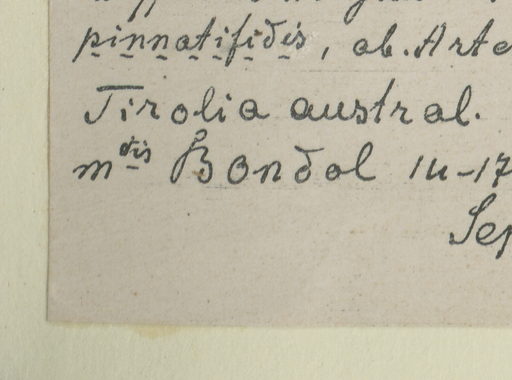 pinnatifidis, ab. Arte
Tirolia austral.
m^tis Bondol 14-17
Sep